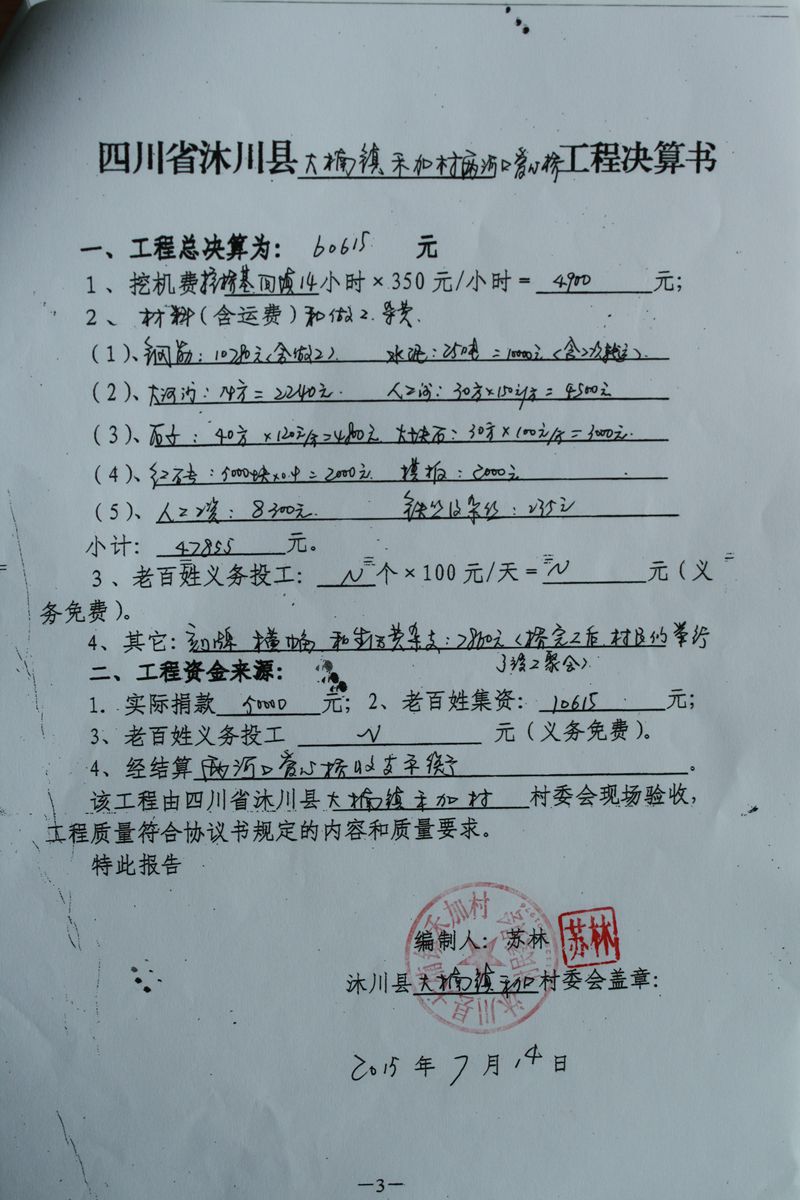 四川省沐川县大楠镇禾加村两河口爱心桥工程决算书
一、工程总决算为： 60615 元
1、挖机费挖桥基回填14小时×350元/小时= 4900 元；
2、材料（含运费）和做工杂费.
（1）、钢筋：10780元（含做工） 水泥：25吨=10000元（含二次转运）
（2）、大河沙：14方=2240元. 人工沙：30方×150元/方=4500元
（3）、石子：40方×120元/方=4800元 大块石：30方×100元/方=3000元.
（4）、红砖：5000块×0.4=2000元. 模板：2000元
（5）、人工工资：8300元. 铁丝及杂丝：235元
小计： 47855 元。
3、老百姓义务投工： N 个×100元/天= N 元（义
务免费）。
4、其它：刻牌 横幅 和生活费杂支：7860元（桥完工后，村民们举行
了竣工聚会）
二、工程资金来源：
1. 实际捐款 50000 元；2、老百姓集资： 10615 元；
3、老百姓义务投工 N 元（义务免费）。
4、经结算 两河口爱心桥收支平衡 。
该工程由四川省沐川县大楠镇禾加村 村委会现场验收，
工程质量符合协议书规定的内容和质量要求。
特此报告
编制人： 苏林 苏林
沐川县大楠镇禾加村委会盖章：
2015年7月14日
—3—